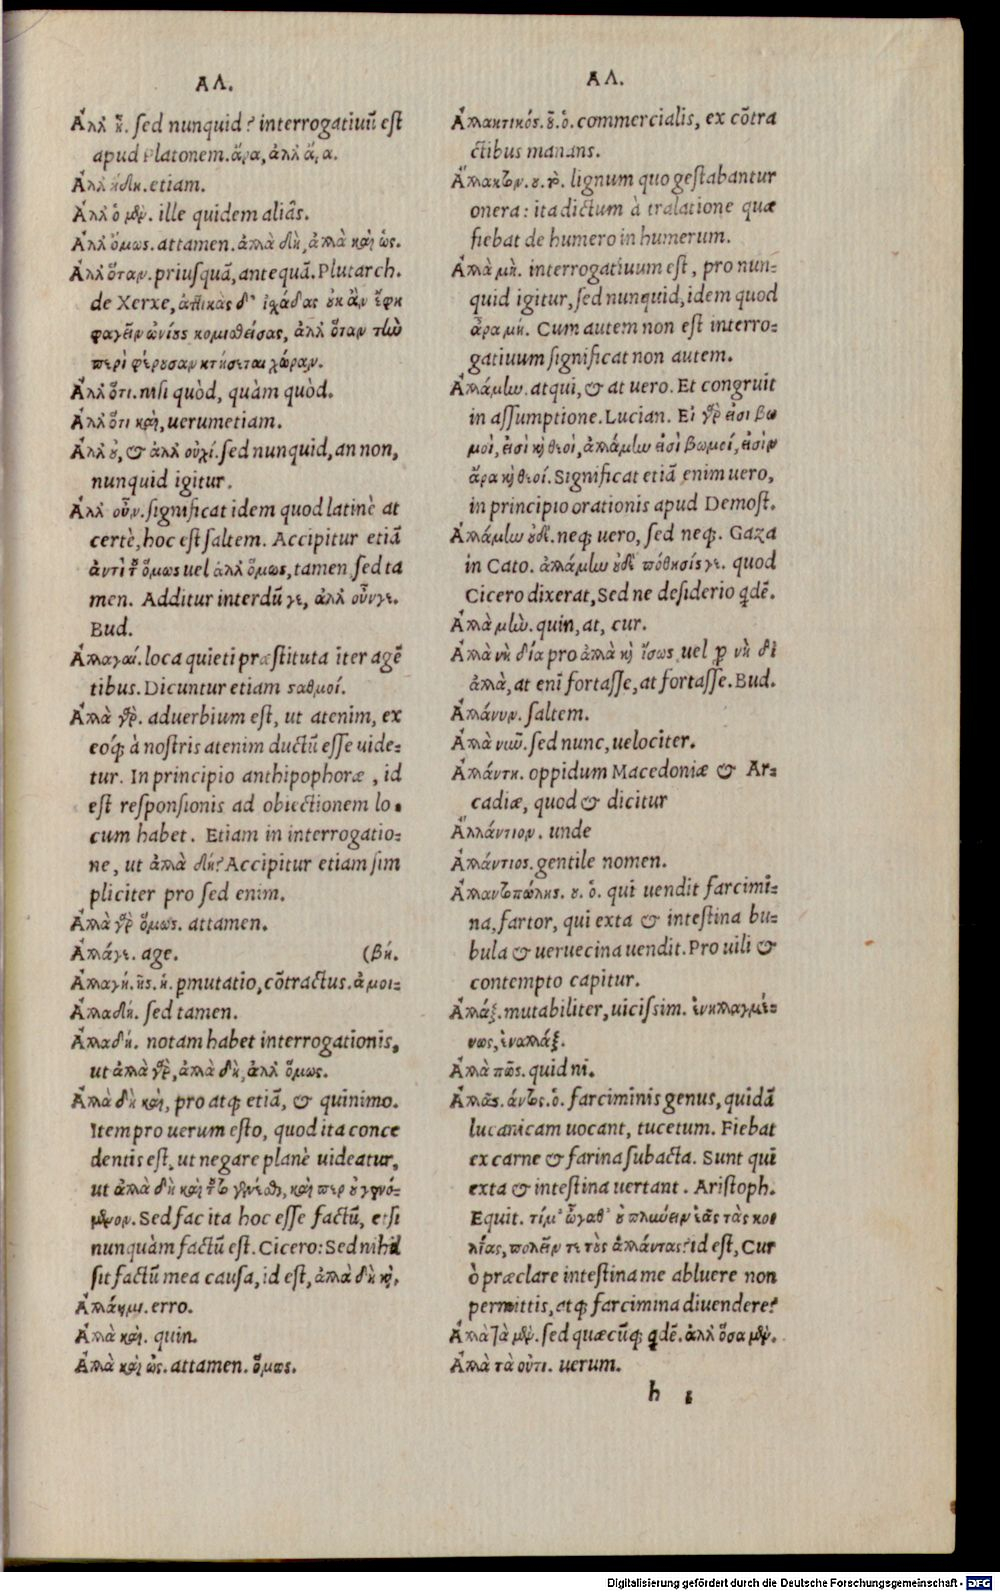 ΑΛ.
Ἀλλ ἦ. sed nunquid? interrogatiuū est
apud Platonem. ἄρα, ἀλλ ἄρα.
Ἀλλ ἤδη. etiam.
Ἀλλ ὁ μὲν. ille quidem aliâs.
Ἀλλ ὅμως. attamen. ἀλλὰ δὴ, ἀλλὰ καὶ ὥς.
Ἀλλ ὅταν. priusquā, antequā. Plutarch.
de Xerxe, ἀττικὰς δ' ἰχάδας οὐκ ἂν ἔφη
φαγεῖν ὠνίους κομισθείσας, ἀλλ ὅταν τὴν
περὶ φέρουσαν κτήσεται χώραν.
Ἀλλ ὅτι. nisi quòd, quàm quòd.
Ἀλλ ὅτι καὶ, uerumetiam.
Ἀλλ οὐ, & ἀλλ οὐχί. sed nunquid, an non,
nunquid igitur.
Ἀλλ οὖν. significat idem quod latinè at
certè, hoc est saltem. Accipitur etiā
ἀντὶ τοῦ ὅμως uel ἀλλ ὅμως, tamen, sed ta
men. Additur interdū γε, ἀλλ οὖνγε.
Bud.
Ἀλλαγαί. loca quieti præstituta iter agē
tibus. Dicuntur etiam σαθμοί.
Ἀλλὰ γὰρ. aduerbium est, ut atenim, ex
eoq́; à nostris atenim ductū esse uide-
tur. In principio anthipophoræ, id
est responsionis ad obiectionem lo-
cum habet. Etiam in interrogatio-
ne, ut ἀλλὰ δή? Accipitur etiam sim
pliciter pro sed enim.
Ἀλλὰ γὰρ ὅμως. attamen.
Ἀλλάγε. age. (βή.
Ἀλλαγή. ῆς. ἡ. ꝑmutatio, cōtractus. ἀμοι-
Ἀλλαδή. sed tamen.
Ἀλλαδή. notam habet interrogationis,
ut ἀλλὰ γὰρ, ἀλλὰ δὴ, ἀλλ ὅμως.
Ἀλλὰ δὴ καὶ, pro atq; etiā, & quinimo.
Item pro uerum esto, quod ita conce
dentis est, ut negare planè uideatur,
ut ἀλλὰ δὴ καὶ τοῦτο γενέσθω, καὶ περ οὐ γενό-
μενον. Sed fac ita hoc esse factū, etsi
nunquàm factū est. Cicero: Sed nihil
sit factū mea causa, id est, ἀλλὰ δὴ καὶ.
Ἀλλάημι. erro.
Ἀλλὰ καὶ. quin.
Ἀλλὰ καὶ ὥς. attamen. ὅμως.
ΑΛ.
Ἀλλακτικός. οῦ. ὁ. commercialis, ex cōtra
ctibus manans.
Ἄλλακτον. ου. τὸ. lignum quo gestabantur
onera: ita dictum à tralatione quæ
fiebat de humero in humerum.
Ἀλλὰ μὴ. interrogatiuum est, pro nun-
quid igitur, sed nunquid, idem quod
ἆρα μή. Cum autem non est interro-
gatiuum significat non autem.
Ἀλλάμην. atqui, & at uero. Et congruit
in assumptione. Lucian. Εἰ γὰρ εἰσι βω
μοὶ, εἰσὶ καὶ θεοὶ, ἀλλάμην εἰσὶ βωμοί, εἰσὶν
ἄρα καὶ θεοί. Significat etiā enimuero,
in principio orationis apud Demost.
Ἀλλάμην οὐδὲ. neq; uero, sed neq;. Gaza
in Cato. ἀλλάμην οὐδὲ πόθησίς γε. quod
Cicero dixerat, Sed ne desiderio qdē.
Ἀλλὰ μὴν. quin, at, cur.
Ἀλλὰ νὴ δία pro ἀλλὰ καὶ ἴσως uel ꝓ νὴ δὶ
ἀλλὰ, at eni fortasse, at fortasse. Bud.
Ἀλλάνυν. saltem.
Ἀλλὰ νῦν. sed nunc, uelociter.
Ἀλλάντη. oppidum Macedoniæ & Ar-
cadiæ, quod & dicitur
Ἀλλάντιον. unde
Ἀλλάντιος. gentile nomen.
Ἀλλαντοπώλης. ου. ὁ. qui uendit farcimi-
na, fartor, qui exta & intestina bu-
bula & ueruecina uendit. Pro uili &
contempto capitur.
Ἀλλάξ. mutabiliter, uicissim. ἐνηλλαγμέ-
νως, ἐναλλάξ.
Ἀλλὰ πῶς. quid ni.
Ἀλλᾶς. άντος. ὁ. farciminis genus, quidā
lucanicam uocant, tucetum. Fiebat
ex carne & farina subacta. Sunt qui
exta & intestina uertant. Aristoph.
Equit. τίμ' ὦγαθ' οὐ πλύνειν ἐᾷς τὰς κοι
λίας, πωλεῖν τε τοὺς ἀλλάντας? id est, Cur
ò præclare intestina me abluere non
permittis, atq; farcimina diuendere?
Ἀλλὰ τὰ μὲν. sed quæcūq; qdē. ἀλλ ὅσα μὲν.
Ἀλλὰ τὰ οὔτι. uerum.
h 1
Digitalisierung gefördert durch die Deutsche Forschungsgemeinschaft - DFG